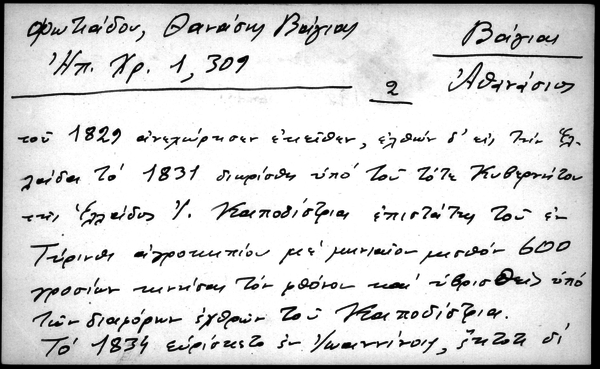 Φωτιάδου, Θανάσης Βάγιας
Ἠπ. Χρ. 1, 309
Βάγιας
Ἀθανάσιος
2
τοῦ 1829 ἀνεχώρησεν ἐκεῖθεν, ἐλθών δ' εἰς τήν Ἑλ-
λάδα τό 1831 διωρίσθη ὑπό τοῦ τότε Κυβερνήτου
τῆς Ἑλλάδος Ἰ. Καποδίστρια ἐπιστάτης τοῦ ἐν
Τύρινθι ἀγροκηπίου μέ μηνιαῖον μισθόν 600
γροσίων κινήσας τόν φθόνον καί ὑβρισθείς ὑπό
τῶν διαφόρων ἐχθρῶν τοῦ Καποδίστρια.
Τό 1834 εὑρίσκετο ἐν Ἰωαννίνοις, ἔκτοτε δέ